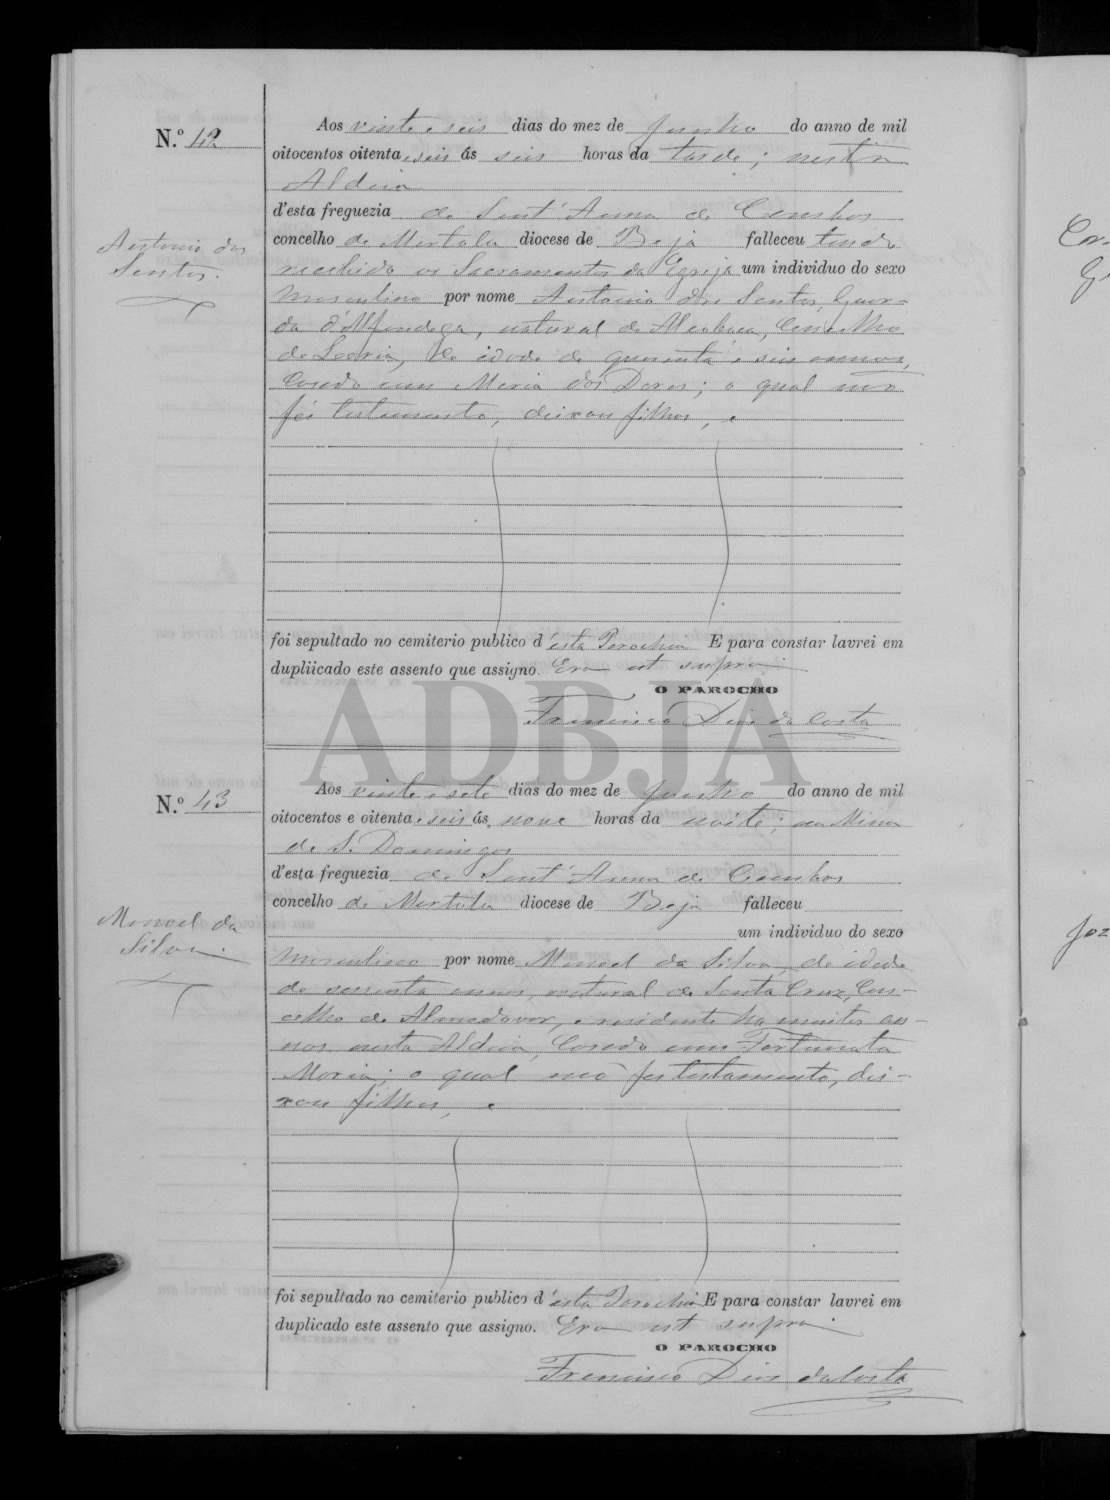 N.º 42
Aos vinte e seis dias do mez de Junho do anno de mil
oitocentos oitenta e seis ás seis horas da tarde; nesta
Aldeia
d'esta freguezia de Sant'Anna de Cambas
concelho de Mertola diocese de Beja falleceu tendo
recebido os Sacramentos da Egreja um individuo do sexo
Masculino por nome Antonio dos Santos, Guar-
da d'Alfandega, natural de Alcobaca, Concelho
de Leoria, de idade de quarenta e seis annos,
Casado com Maria das Dores; o qual não
fes testamento, deixou filhos, e
Antonio dos
Santos.
foi sepultado no cemiterio publico d'esta Parochia E para constar lavrei em
dupliicado este assento que assigno. Era ut supra
O PAROCHO
Francisco Dias da Costa
ADBJA
N.º 43
Aos vinte e sete dias do mez de Junho do anno de mil
oitocentos e oitenta e seis ás nove horas da noite; na Mina
de S. Domingos
d'esta freguezia de Sant'Anna de Cambas
concelho de Mertola diocese de Beja falleceu
um individuo do sexo
Masculino por nome Manoel da Silva, de idade
de sessenta annos, natural de Santa Cruz, Con-
celho de Almodovar, e residente ha muitos an-
nos nesta Aldeia, Casado com Fortunata
Maria; o qual não fes testamento, dei-
xou filhos, e
Manoel da
Silva.
foi sepultado no cemiterio publico d'esta Parochia E para constar lavrei em
duplicado este assento que assigno. Era ut supra
O PAROCHO
Francisco Dias da Costa